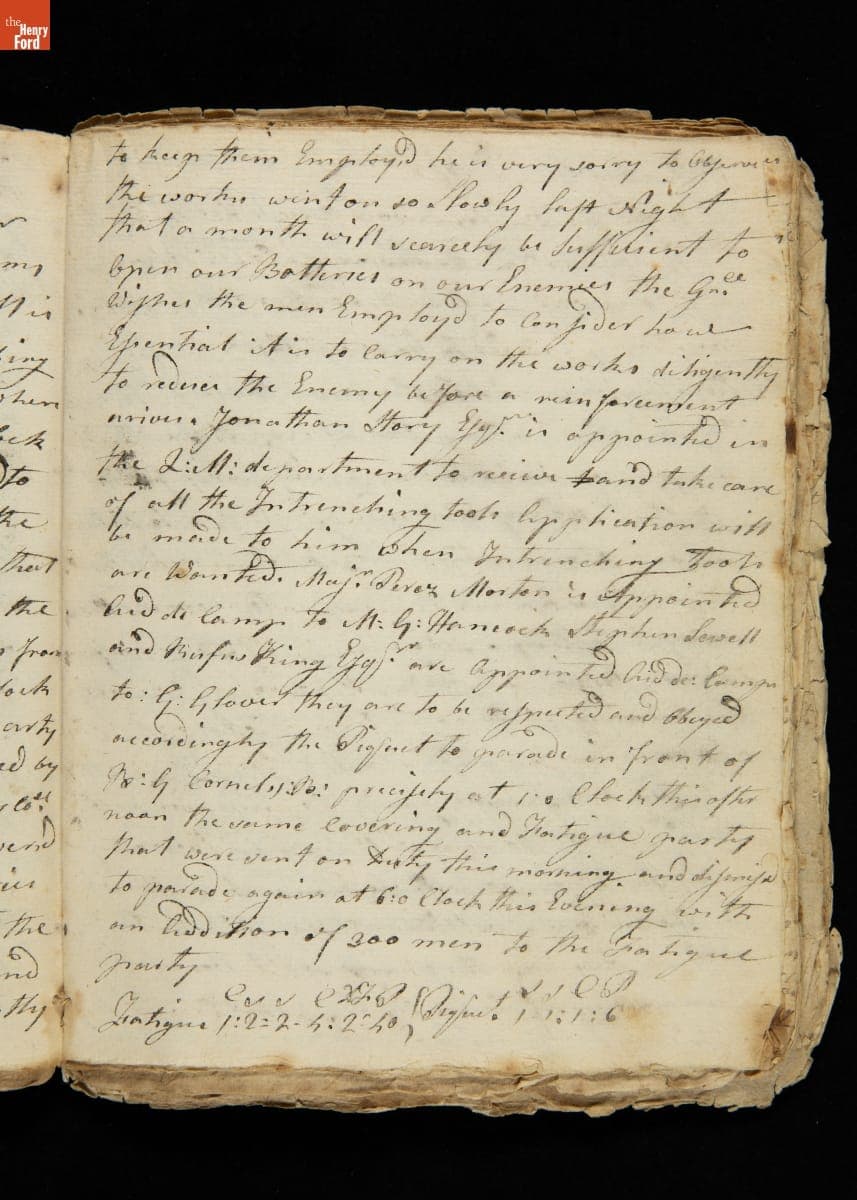 the
Henry
Ford
to keep them Employ'd he is very sorry to Observe
the works went on so Slowly last Night
that a month will scarcely be Sufficient to
Open our Batteries on our Enemies the Gnl
Wishes the men Employ'd to Consider how
Essential it is to Carry on the works diligently
to reduce the Enemy before a reinforcement
arives. Jonathan Story Esqr. is appointed in
the Q: M: department to receive and take care
of all the Intrenching tools Application will
be made to him when Intrenching Tools
are Wanted. Majr. Perez Morton is Appointed
Aid de Camp to M: G: Hancock Stephen Sewell
and Rufus King Esqr. are Appointed Aid de: Camps
to: G: Glover they are to be respected and Obeyed
accordingly the Piquet to parade in front of
B: G Cornels: B: precisely at Clock this after
noon the same Covering and Fatigue party
that were sent on Duty this morning and dismis'd
to parade again at 6:o Clock this Evening with
an Addition of 300 men to the Fatigue
party
C s s C P
Fatigue 1:2=2-4:2-40 Piquet 1 1:1:6
my
is
ing
where
to
the
that
the
from
arty
ed by
the
and